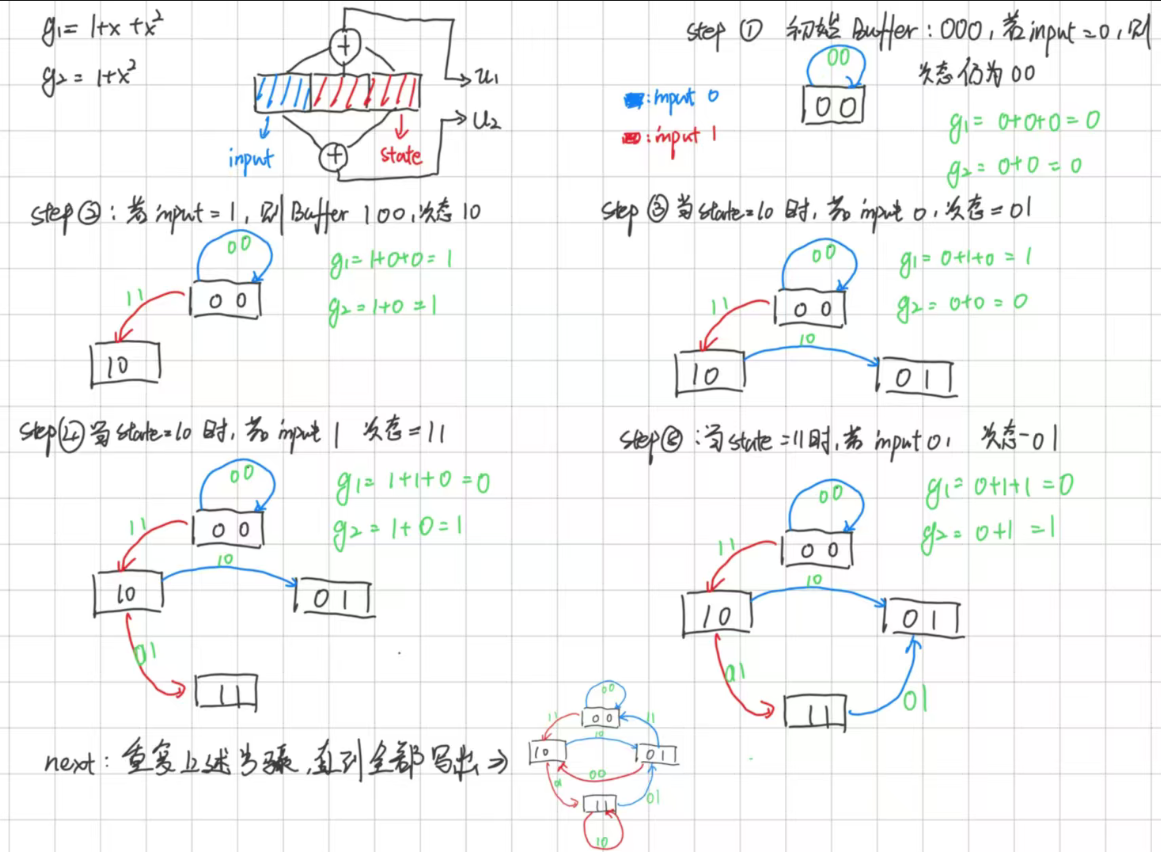 g₁ = 1+x+x²
g₂ = 1+x²
+
u₁
+
u₂
input
state
step ① 初始Buffer:000,若input=0,则
次态仍为00
00
0 0
:input 0
:input 1
g₁= 0+0+0=0
g₂= 0+0 = 0
step②:若input=1,则Buffer 100,次态10
00
0 0
11
10
g₁=1+0+0=1
g₂=1+0=1
step③当state=10时,若input 0,次态=01
00
0 0
11
10
10
01
g₁=0+1+0=1
g₂=0+0=0
step④当state=10时,若input 1 次态=11
00
0 0
11
10
10
01
01
11
g₁= 1+1+0=0
g₂ = 1+0=1
step⑤:当state=11时,若input 0, 次态=01
00
0 0
11
10
10
01
01
11
01
g₁= 0+1+1=0
g₂= 0+1 =1
next:重复上述步骤,直到全部写出⇒
00
0 0
11
11
10
10
01
00
01
01
11
10